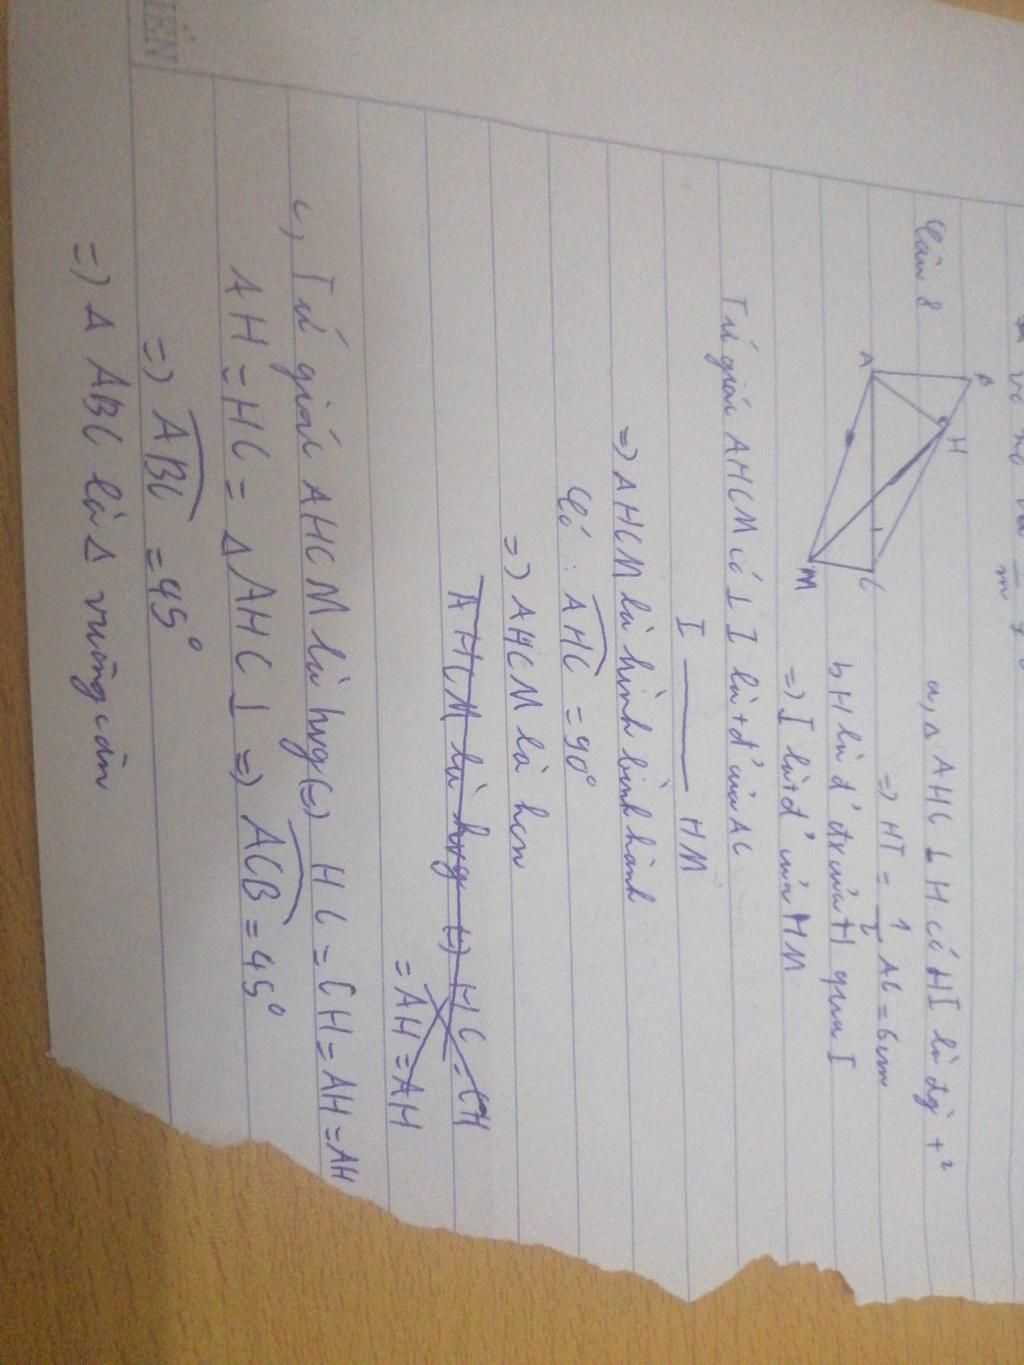 Câu 8
B
H
A
C
M
a, Δ AHC ⊥ H có HI là đg t²
=> HI = 1/2 AC = 6cm
b H là đ' đx của H qua I
=> I là t đ' của HM
Tứ giác AHCM có ⊥ I là t đ' của AC
I ——— HM
=> AHCM là hình bình hành
Có : AHC = 90°
=> AHCM là hcn
AHCM là hvg (=) HC = CH
= AH = AH
c, Tứ giác AHCM là hvg (=) HC = CH = AH = AH
AH = HC = Δ AHC ⊥ => ACB = 45°
=> ABC = 45°
=> Δ ABC là Δ vuông cân